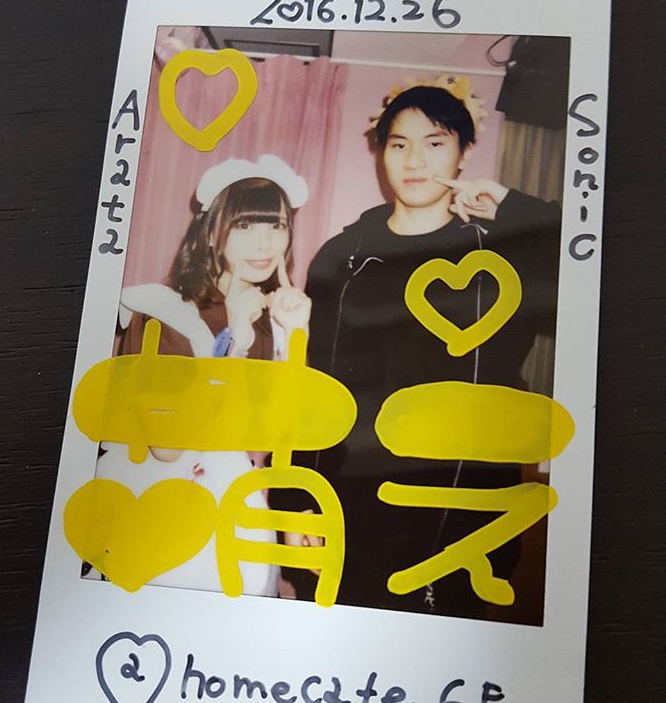 2♡16.12.26
Arata
Sonic
萌え
@homecafe.